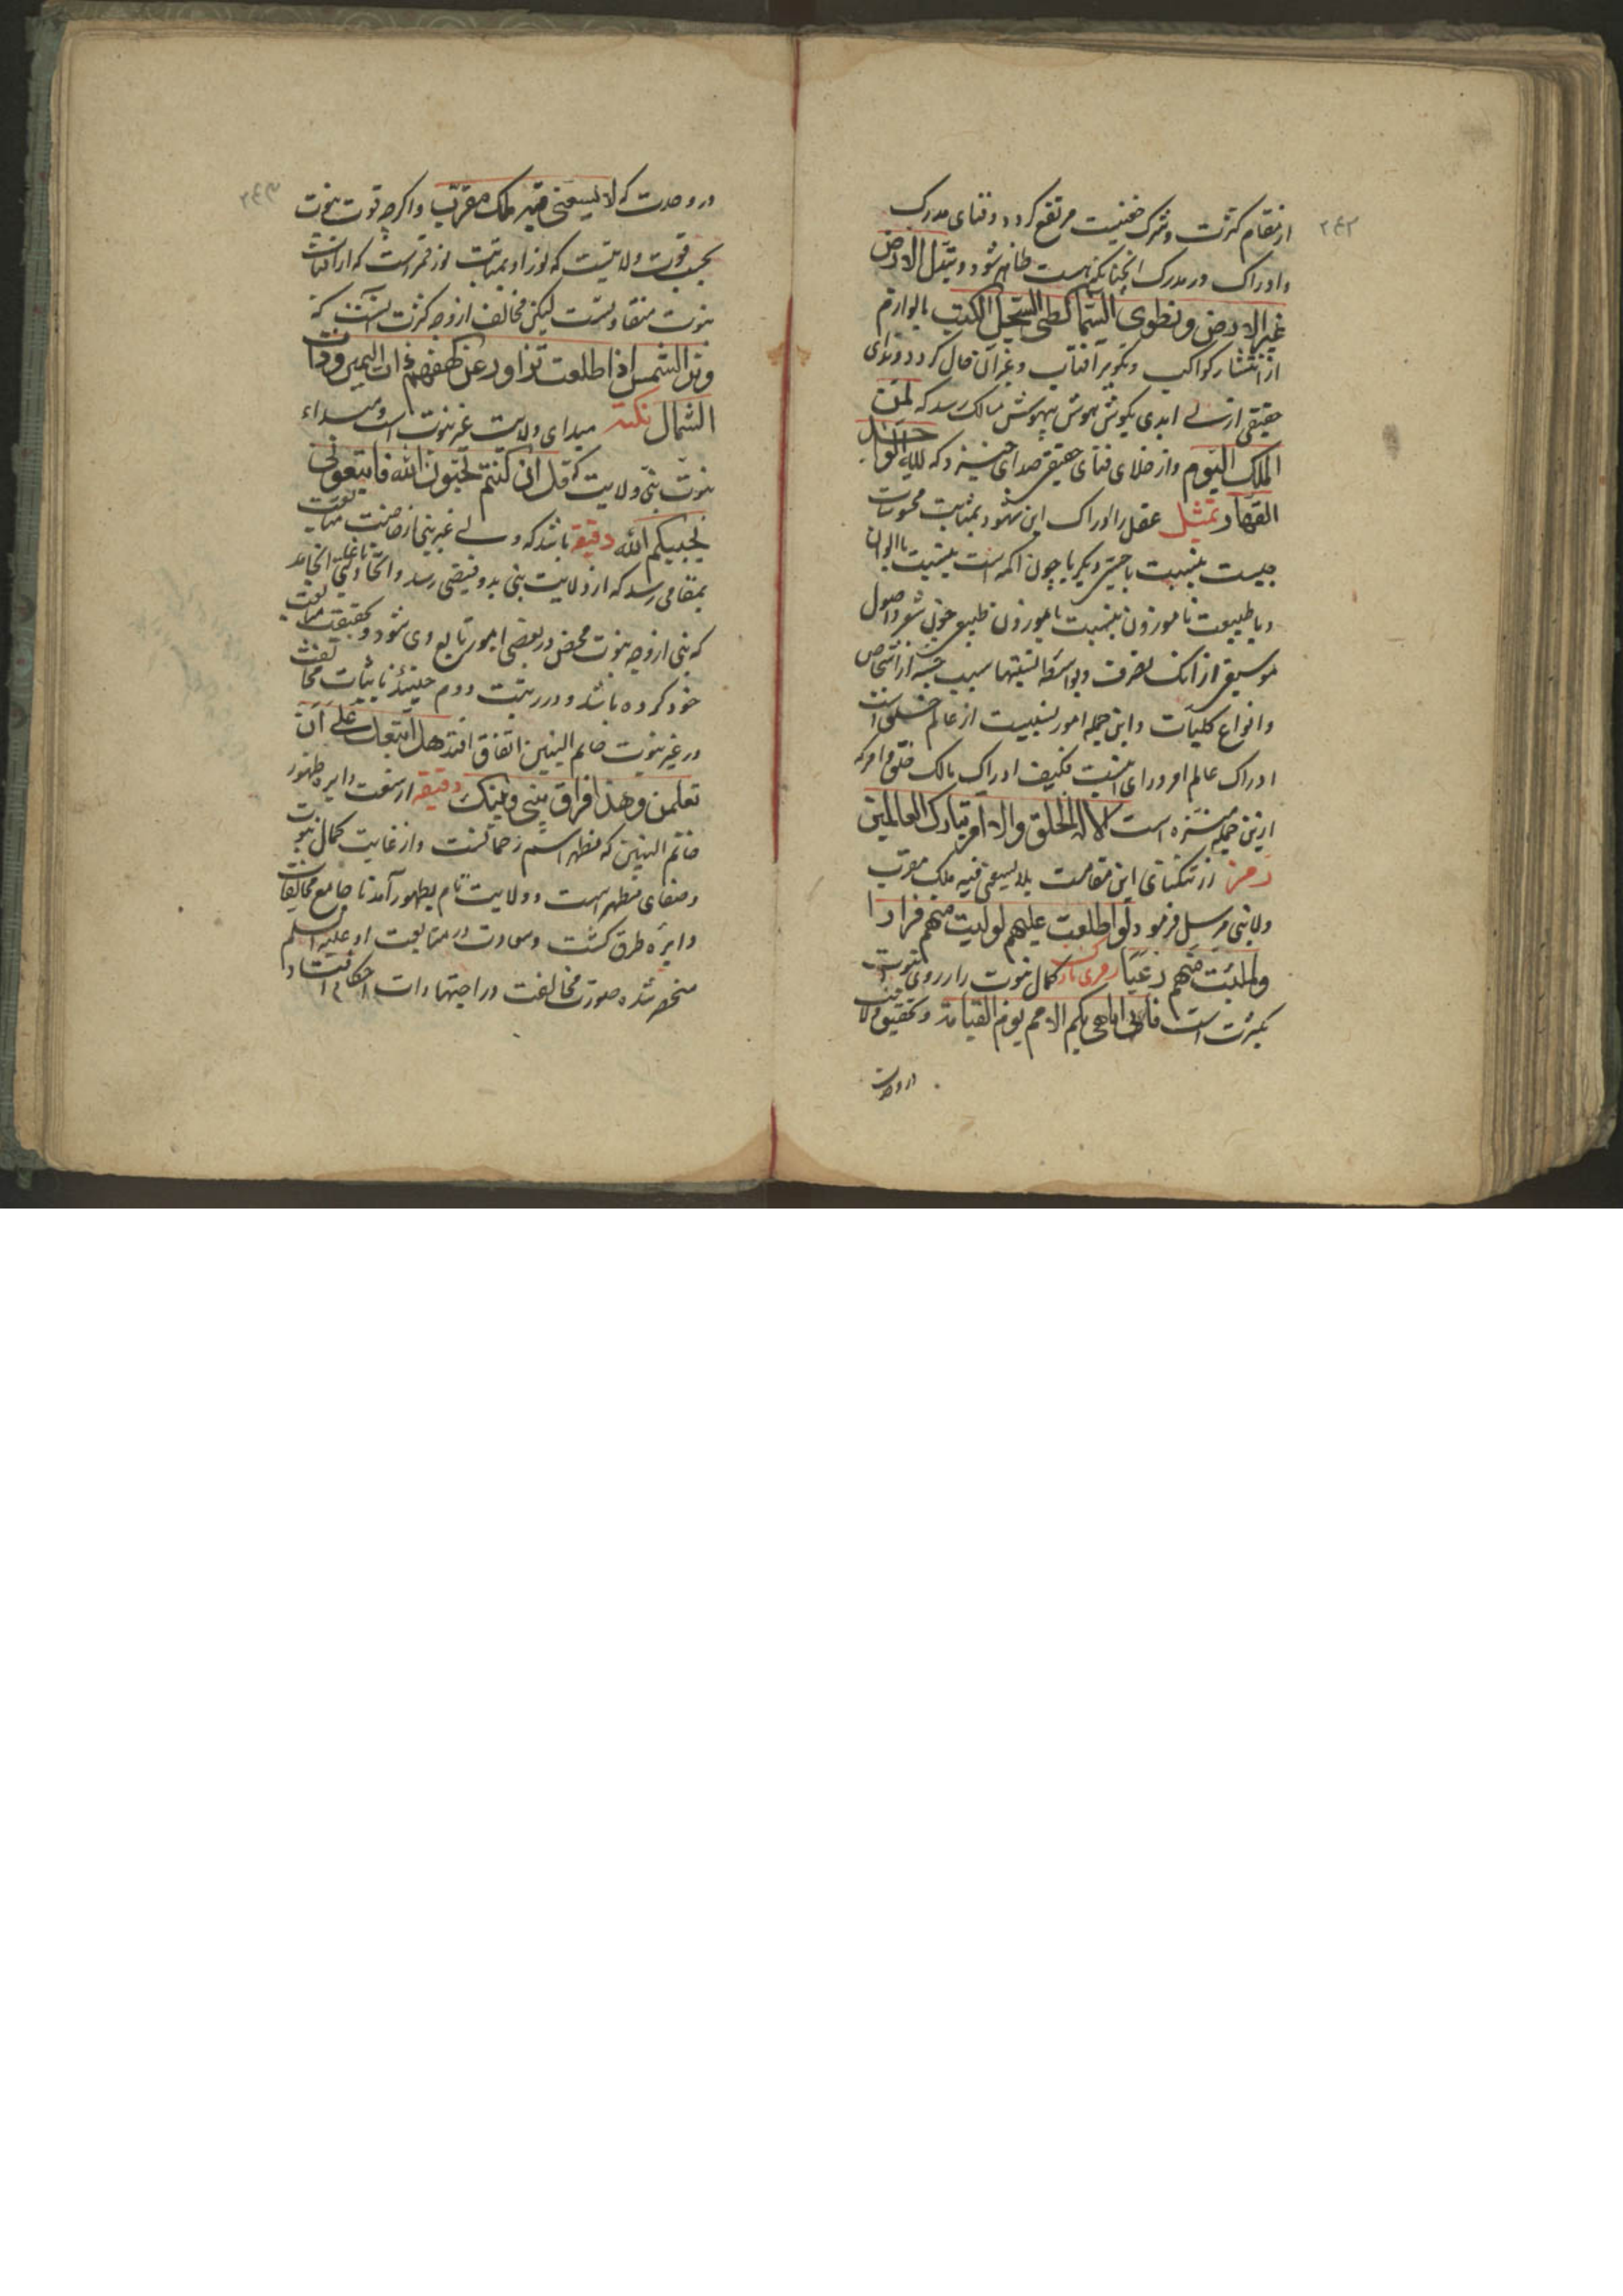 ٢٤٢
از مقام کثرت و شرک خفیت مرتفع کردد و فنای مدرک
و ادراک در مدرک انچنانکه هست ظاهر شود و تبدل الارض
غیر الارض و نطوی السما کطی السجل الکتب بالوازم
از انتشار کواکب و تکویر افتاب و غیر ان حال کردد و ندای
حقیقی ازلی ابدی بکوش هوش بیهوش سالک رسد که لمن
الملک الیوم و از خلای فنای حقیقی صدای خیزد که لله الواحد
القهار تمثیل عقل را ادراک این شهود بمثابت محسوسات
حسیست بنسبت با حسّی دیکر یا چون اکمه است بنسبت با الوان
و یا طبیعت ناموزون بنسبت با موزون طبیعی چون شعر و اصول
موسیقی از انک تصرف و بواسطه نسبتها سبب جنسه از اشخاص
و انواع کلیات و این جمله امور نسبیست از عالم خلق است
ادراک عالم امر ورای نسبت فکیف ادراک مالک خلق و امر که
ازین جمله منزه است الا له الخلق والامر تبارک العالمین
رمز از تنکنای این مقامست بلا یسعنی فیه ملک مقرب
ولا نبی مرسل فرمود لو اطلعت علیهم لولیت منهم فرارا
ولملئت منهم رعبا رمزی نازک کمال نبوت را از روی نبوت
بکثرت است فانی اباهی بکم الامم یوم القیامة و تحقیق ولایت
در وحدت
٢٤٣
در وحدت که لا یسعنی فیه ملک مقرب و اکرچه قوت نبوت
بحسب قوت ولایتست که نور او بمرتبت نور قمر است که از افتاب
نبوت متفاوتست لیکن مخالف از وجه کثرت انست که
وتر الشمس اذا طلعت تزاور عن کهفهم ذات الیمین وذات
الشمال نکته مبدای ولایت غیر نبوت است و مبداء
نبوت نبی ولایت که قل ان کنتم تحبون الله فاتبعونی
یحببکم الله دقیقه باشد که ولی غیر نبی از خاصیت متابعت
بمقامی رسد که از ولایت نبی بدو فیضی رسد و اتحاد
که نبی از وجه نبوت محض در بعضی امور تابع وی شود و بحقیقت متابعت
خود کرده باشد و در رتبت دوم حینئذ باثبات مخالفت
در غیر نبوت خاتم النبین اتفاق افتد هل اتبعک علی ان
تعلمن وهذا فراق بینی وبینک دقیقه از سعت دایره ظهور
خاتم النبین که مظهر اسم رحمانست و از غایت کمال نبوت
و صفای مظهر است و ولایت تام بظهور آمد تا جامع مخالفات
دایره طرق کشت و سعادت در متابعت او علیه السلم
منحصر شده صورت مخالفت در اجتهادات احکام افتاد